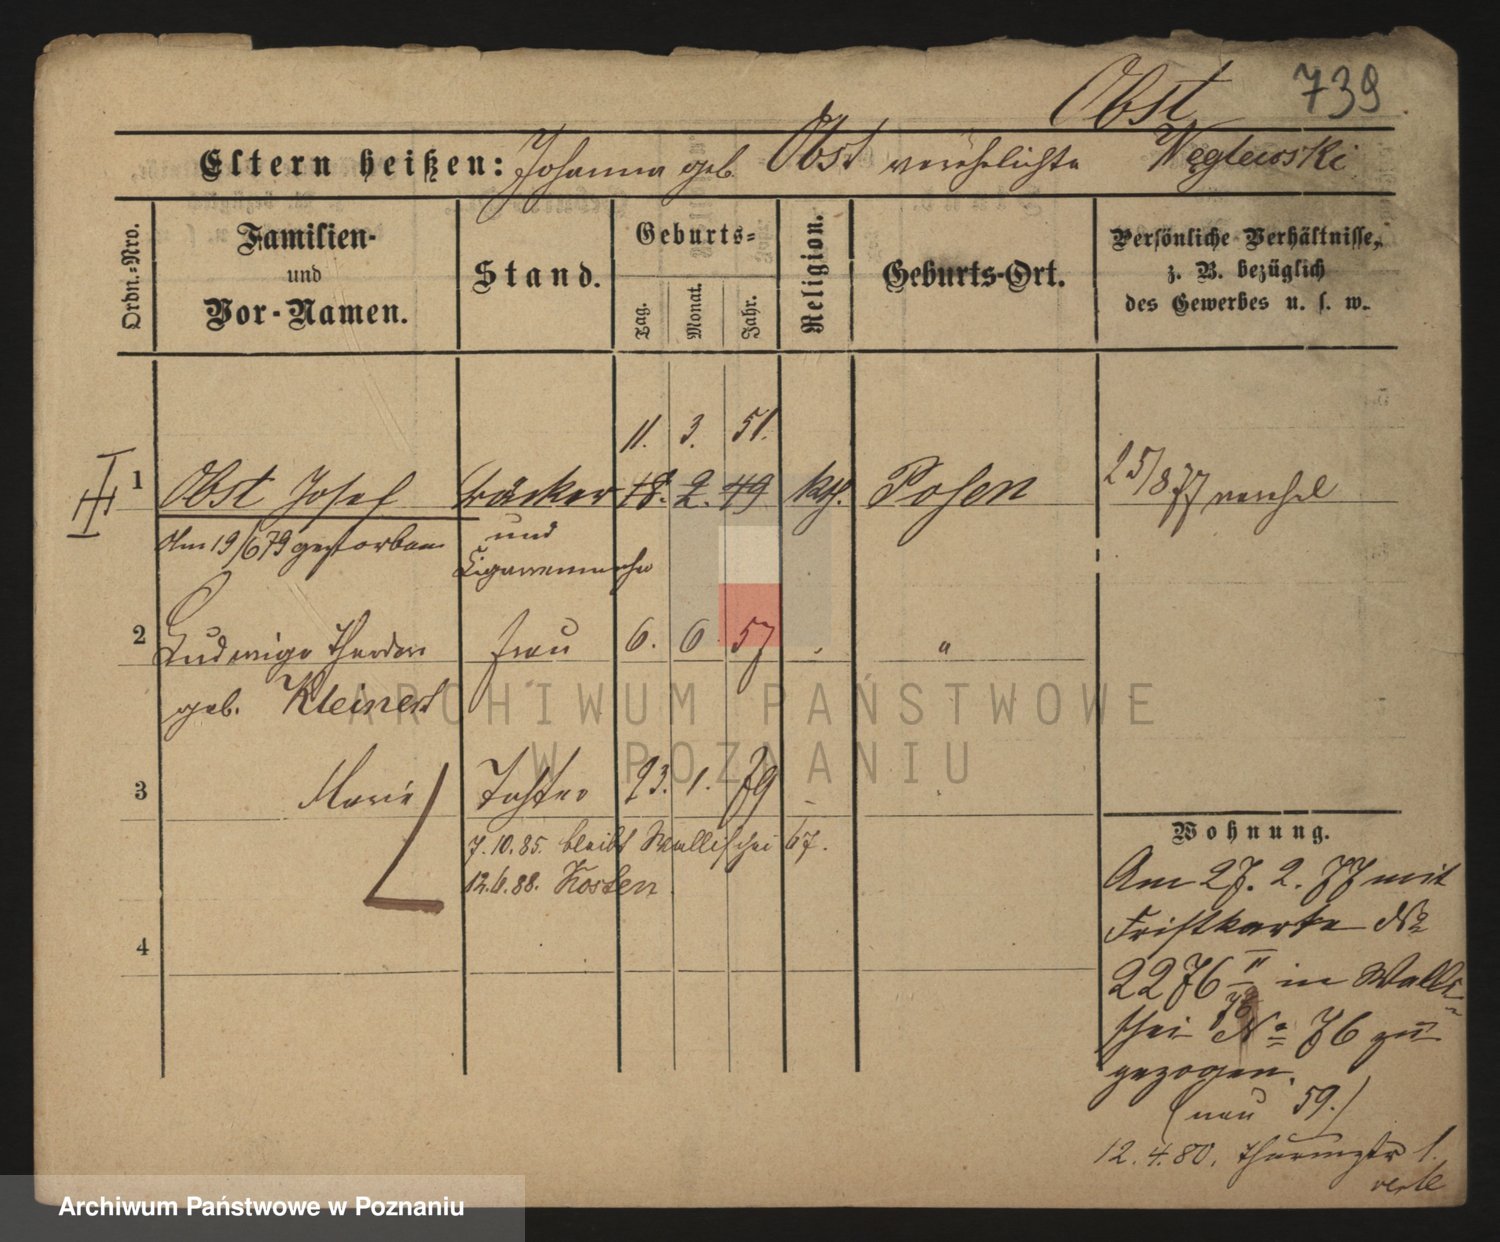 Obst 739
Eltern heißen: Johanna geb. Obst verehelichte Węglewski
Ordn.-Nro.
Familien-
und
Vor-Namen.
Stand.
Geburts-
Tag.
Monat.
Jahr.
Religion.
Geburts-Ort.
Persönliche Verhältnisse,
z. B. bezüglich
des Gewerbes u. s. w.
11. 3. 51.
1 Obst Josef Bäcker 18. 2. 49 kth. Posen 25/8 77 verehel
Am 19/6 79 gestorben und
Cigarrenmacher
2 Ludwiga Theodora Frau 6. 6 57 "
geb. Kleinert
3 Marie Tochter 23. 1. 79
7.10.85. bleibt Wallischei 67.
12.6.88. Kosten.
4
Wohnung.
Am 27. 2. 77 mit
Fristkarte No
2276 II in Walli-
schei No 76 zu
gezogen.
(neu 59.)
12.4.80. Thurmstr 1.
verte
ARCHIWUM PAŃSTWOWE
W POZNANIU
Archiwum Państwowe w Poznaniu